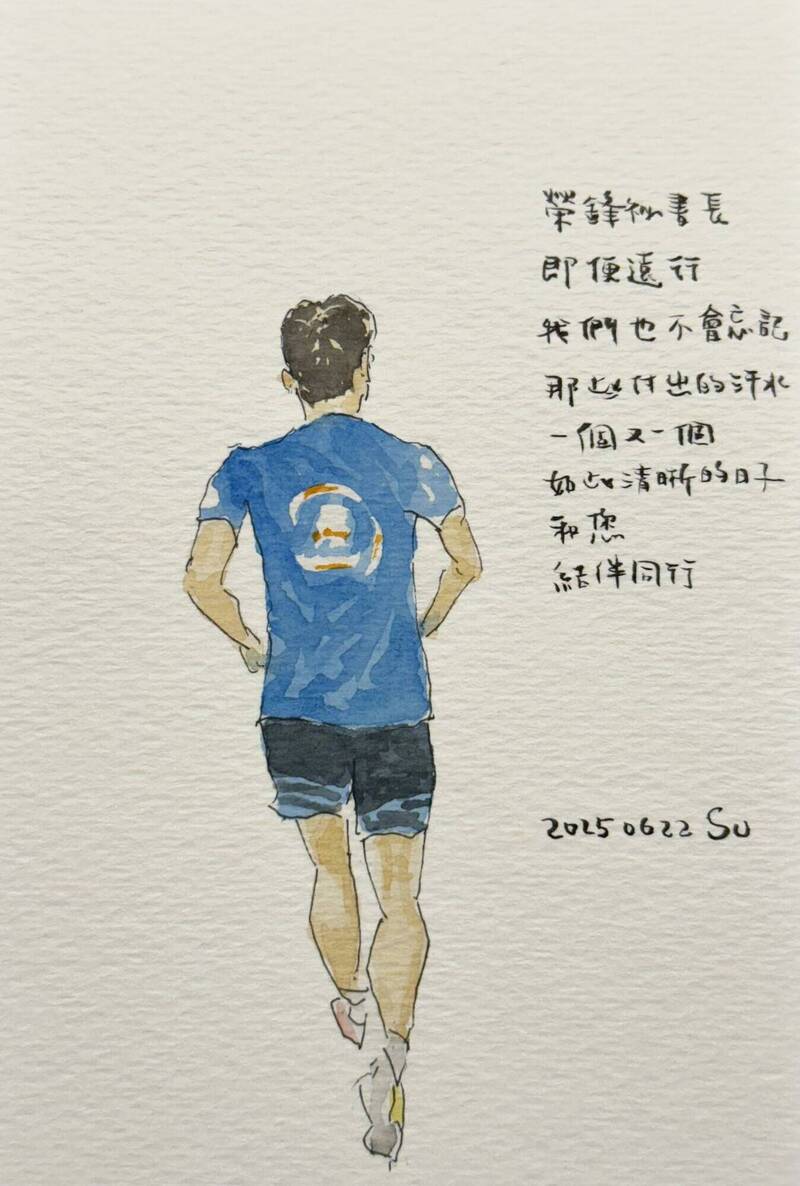 榮鋒祕書長
即便遠行
我們也不會忘記
那些付出的汗水
一個又一個
如此清晰的日子
和您
結伴同行
20250622 Su